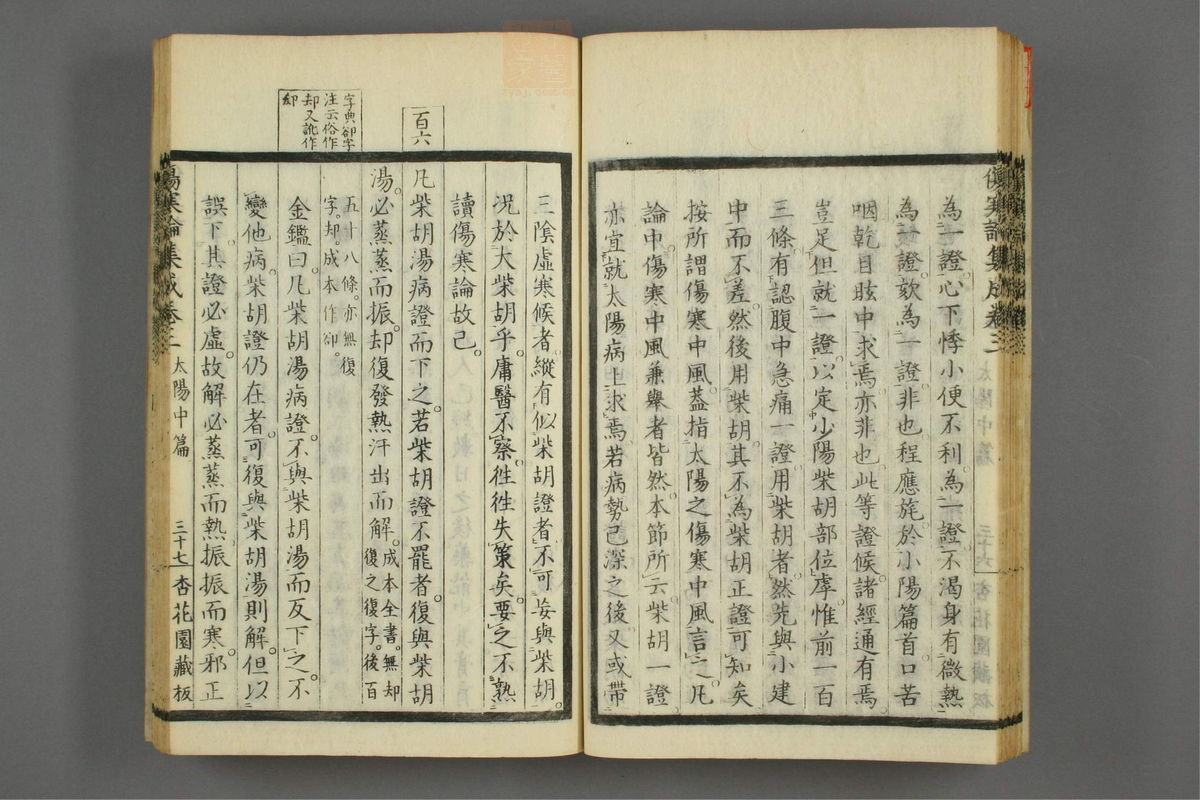 為一證心下悸小便不利為一證不渴身有微熱
為一證欬為一證非也程應旄於小陽篇首口苦
咽乾目眩中求焉亦非也此等證候諸經通有焉
豈足但就一證以定少陽柴胡部位虖惟前一百
三條有認腹中急痛一證用柴胡者然先與小建
中而不差然後用柴胡其不為柴胡正證可知矣
按所謂傷寒中風蓋指太陽之傷寒中風言之凡
論中傷寒中風兼舉者皆然本節所云柴胡一證
亦宜就太陽病上求焉若病勢已深之後又或帶
三陰虛寒候者縱有似柴胡證者不可妄與柴胡
況於大柴胡乎庸醫不察往往失策矣要之不熟
讀傷寒論故已
百六
凡柴胡湯病證而下之若柴胡證不罷者復與柴胡
湯必蒸蒸而振却復發熱汗出而解成本全書無却
復之復字後百
五十八條亦無復
字却成本作卻
字典卻字
注云俗作
却又訛作
卻
金鑑曰凡柴胡湯病證不與柴胡湯而反下之不
變他病柴胡證仍在者可復與柴胡湯則解但以
誤下其證必虛故解必蒸蒸而熱振振而寒邪正
傷寒論集成卷三 太陽中篇 三十七 杏花園藏板